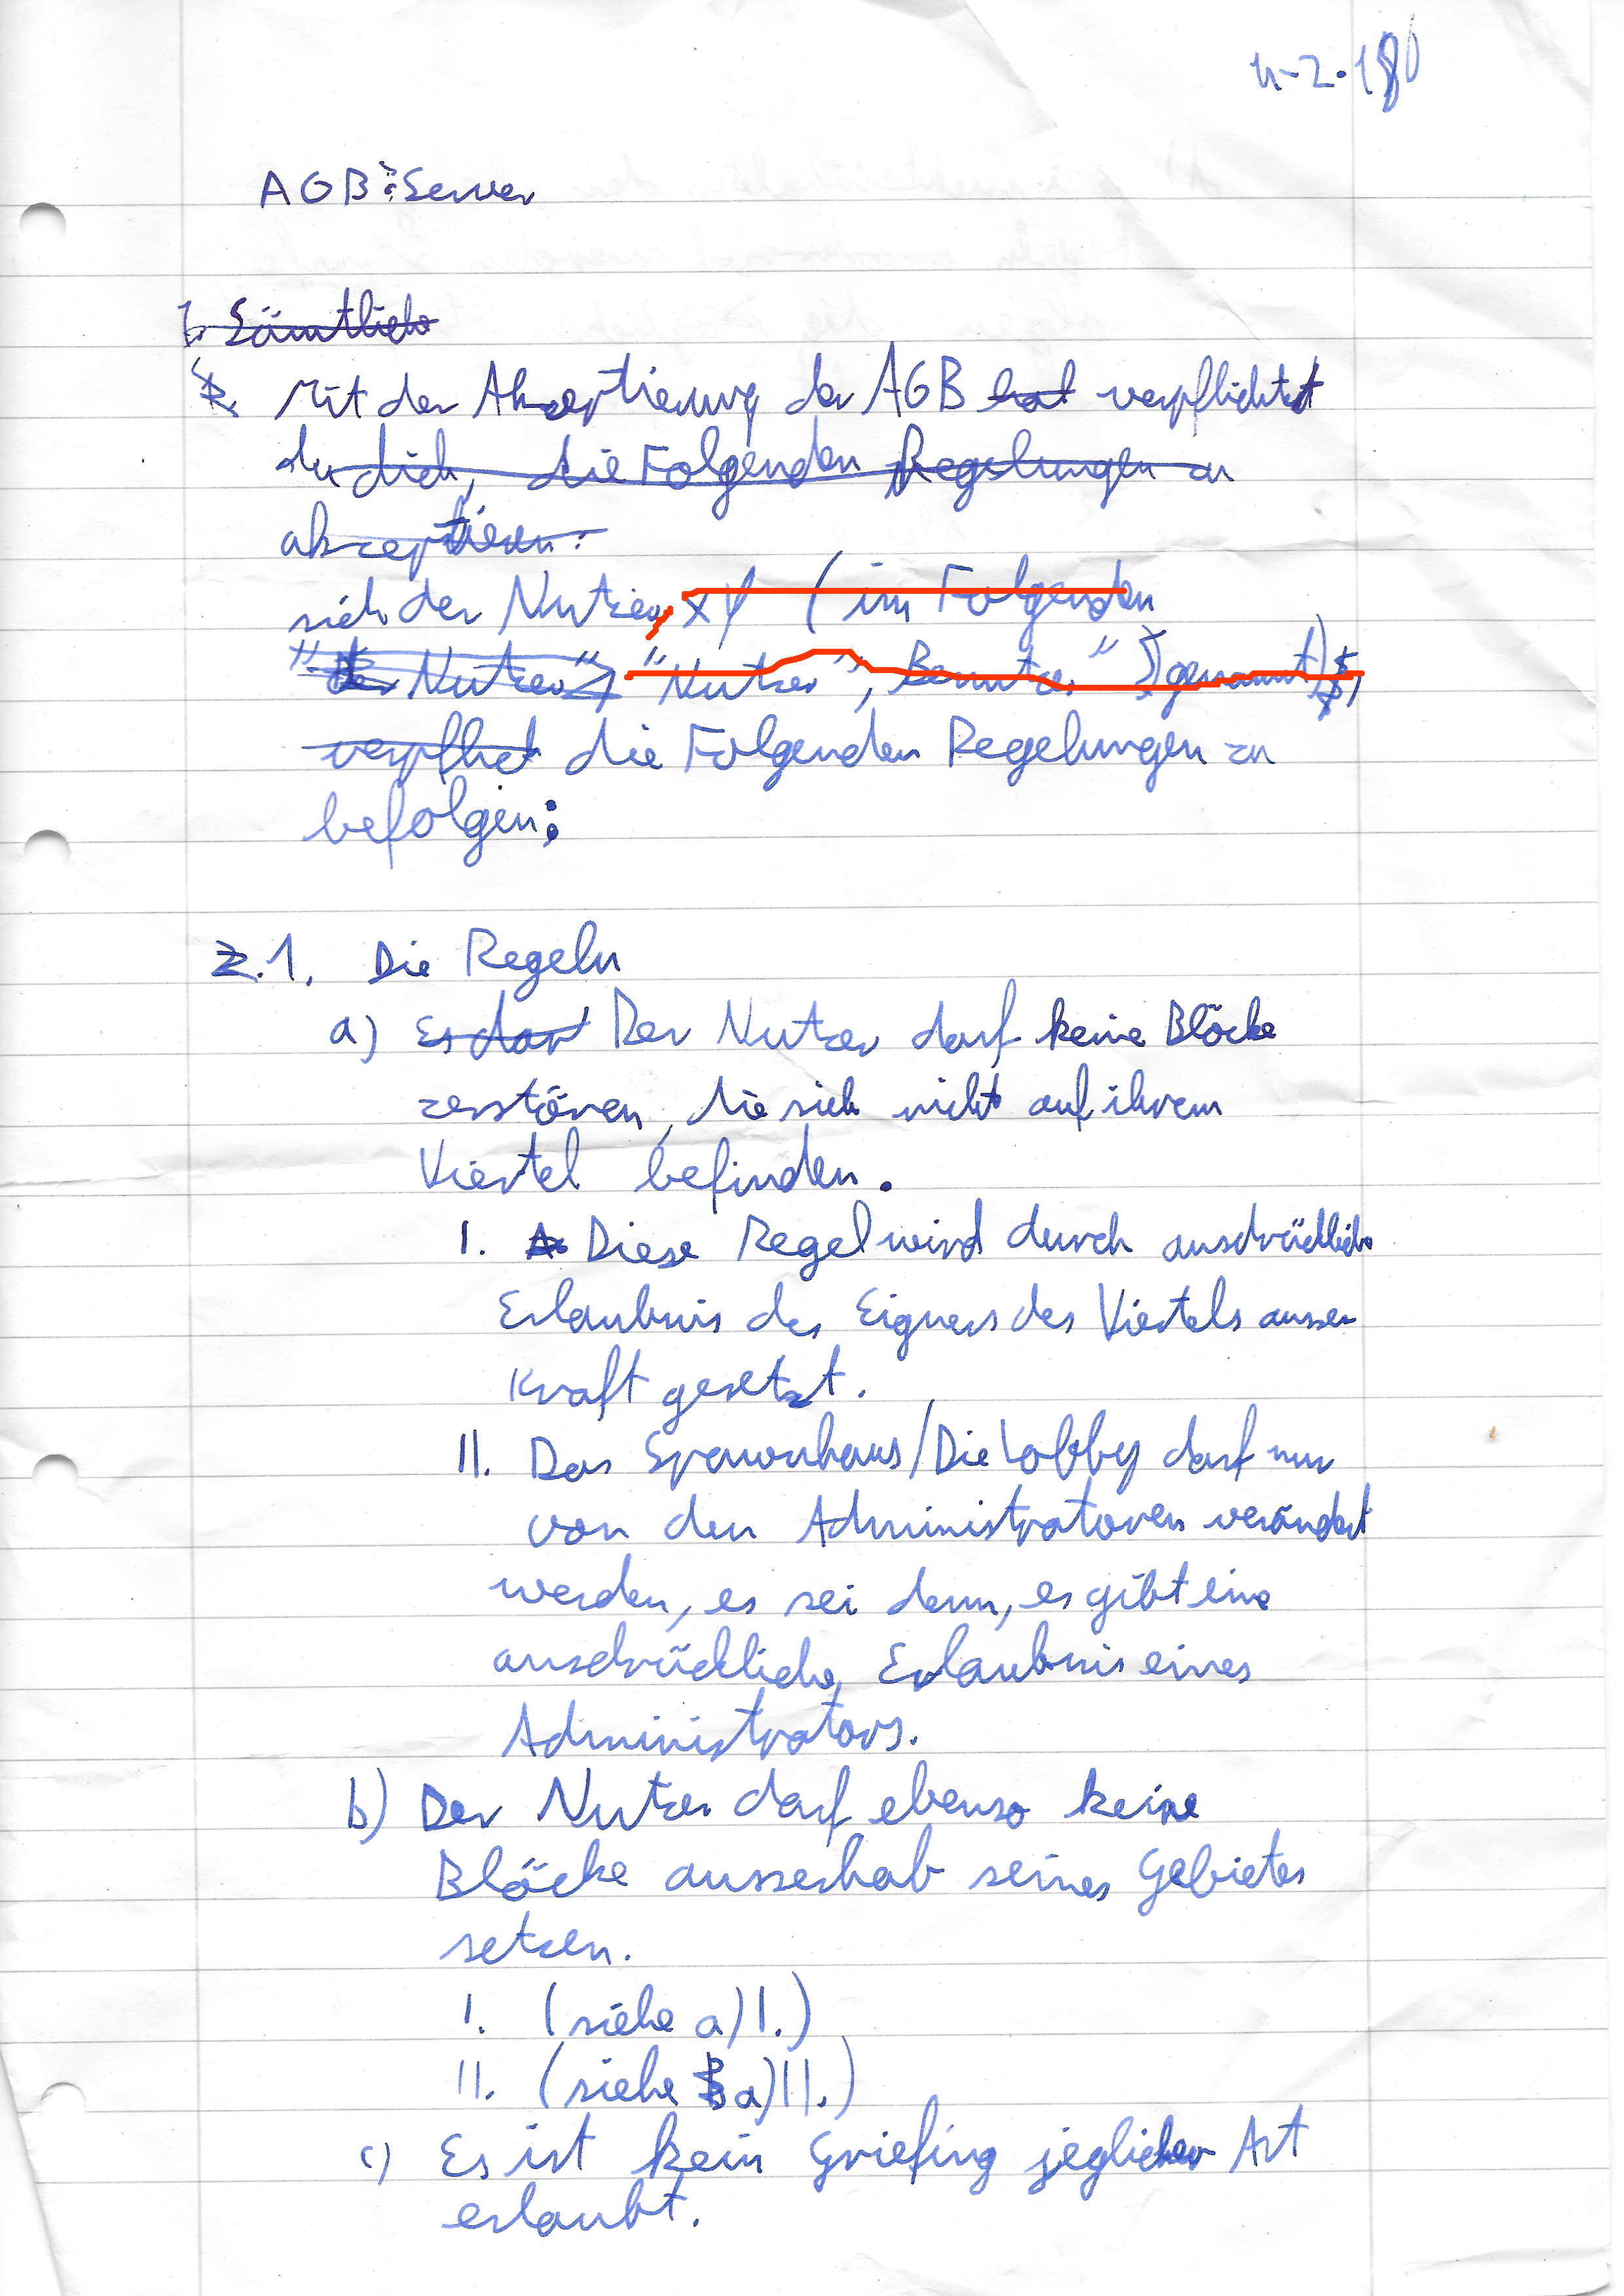 AGB: Server
1. Sämtliche
Mit der Akzeptierung der AGB hat verpflichtet
du dich, die Folgenden Regelungen zu
akzeptieren:
sich der Nutzer, XY (im Folgenden
"Der Nutzer", "Nutzer", Benutzer" genannt),
verpflet die Folgenden Regelungen zu
befolgen:
2.1. Die Regeln
a) Es darf Der Nutzer darf keine Blöcke
zerstören, die sich nicht auf ihrem
Viertel befinden.
I. Diese Regel wird durch ausdrückliche
Erlaubnis des Eigners des Viertels ausser
Kraft gesetzt.
II. Das Spawnhaus/Die Lobby darf nur
von den Administratoren verändert
werden, es sei denn, es gibt eine
ausdrückliche Erlaubnis eines
Administrators.
b) Der Nutzer darf ebenso keine
Blöcke ausserhab seines Gebietes
setzen.
I. (siehe a) I.)
II. (siehe a) II.)
c) Es ist kein Griefing jeglicher Art
erlaubt.